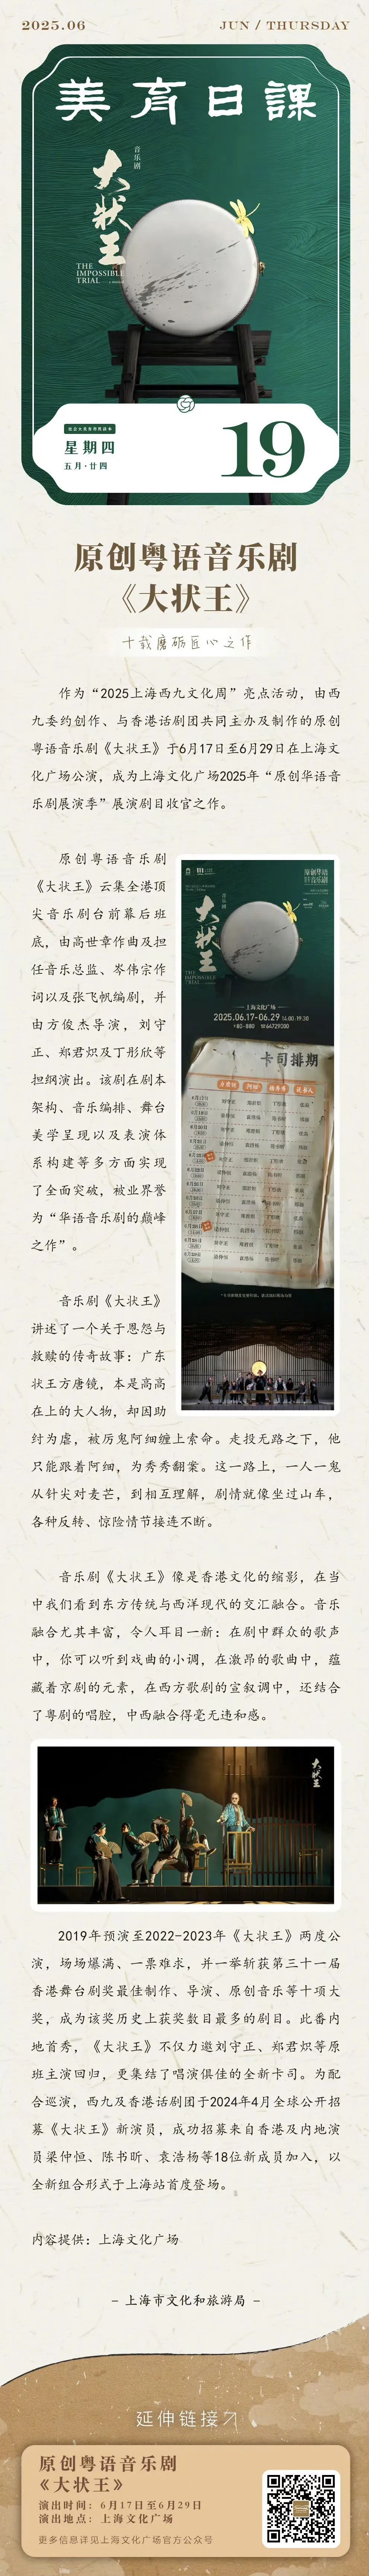 2025.06
JUN / THURSDAY
美育日課
音乐剧
大状王
THE
IMPOSSIBLE
TRIAL
星期四
五月·廿四
19
原创粤语音乐剧
《大状王》
十载磨砺匠心之作
作为“2025上海西九文化周”亮点活动，由西
九委约创作、与香港话剧团共同主办及制作的原创
粤语音乐剧《大状王》于6月17日至6月29日在上海文
化广场公演，成为上海文化广场2025年“原创华语音
乐剧展演季”展演剧目收官之作。
原创粤语音乐剧
《大状王》云集全港顶
尖音乐剧台前幕后班
底，由高世章作曲及担
任音乐总监、岑伟宗作
词以及张飞帆编剧，并
由方俊杰导演，刘守
正、郑君炽及丁彤欣等
担纲演出。该剧在剧本
架构、音乐编排、舞台
美学呈现以及表演体
系构建等多方面实现
了全面突破，被业界誉
为“华语音乐剧的巅峰
之作”。
原创华语
音乐剧
大状王
音乐剧
THE
IMPOSSIBLE
TRIAL
上海文化广场
2025.06.17-06.29 14:00 19:30
¥80-880 ☎64729200
卡司排期
音乐剧《大状王》
讲述了一个关于恩怨与
救赎的传奇故事：广东
状王方唐镜，本是高高
在上的大人物，却因助
纣为虐，被厉鬼阿细缠上索命。走投无路之下，他
只能跟着阿细，为秀秀翻案。这一路上，一人一鬼
从针尖对麦芒，到相互理解，剧情就像坐过山车，
各种反转、惊险情节接连不断。
音乐剧《大状王》像是香港文化的缩影，在当
中我们看到东方传统与西洋现代的交汇融合。音乐
融合尤其丰富，令人耳目一新：在剧中群众的歌声
中，你可以听到戏曲的小调，在激昂的歌曲中，蕴
藏着京剧的元素，在西方歌剧的宣叙调中，还结合
了粤剧的唱腔，中西融合得毫无违和感。
大状王
2019年预演至2022-2023年《大状王》两度公
演，场场爆满、一票难求，并一举斩获第三十一届
香港舞台剧奖最佳制作、导演、原创音乐等十项大
奖，成为该奖历史上获奖数目最多的剧目。此番内
地首秀，《大状王》不仅力邀刘守正、郑君炽等原
班主演回归，更集结了唱演俱佳的全新卡司。为配
合巡演，西九及香港话剧团于2024年4月全球公开招
募《大状王》新演员，成功招募来自香港及内地演
员梁仲恒、陈书昕、袁浩杨等18位新成员加入，以
全新组合形式于上海站首度登场。
内容提供：上海文化广场
– 上海市文化和旅游局 –
延伸链接
原创粤语音乐剧
《大状王》
演出时间：6月17日至6月29日
演出地点：上海文化广场
更多信息详见上海文化广场官方公众号